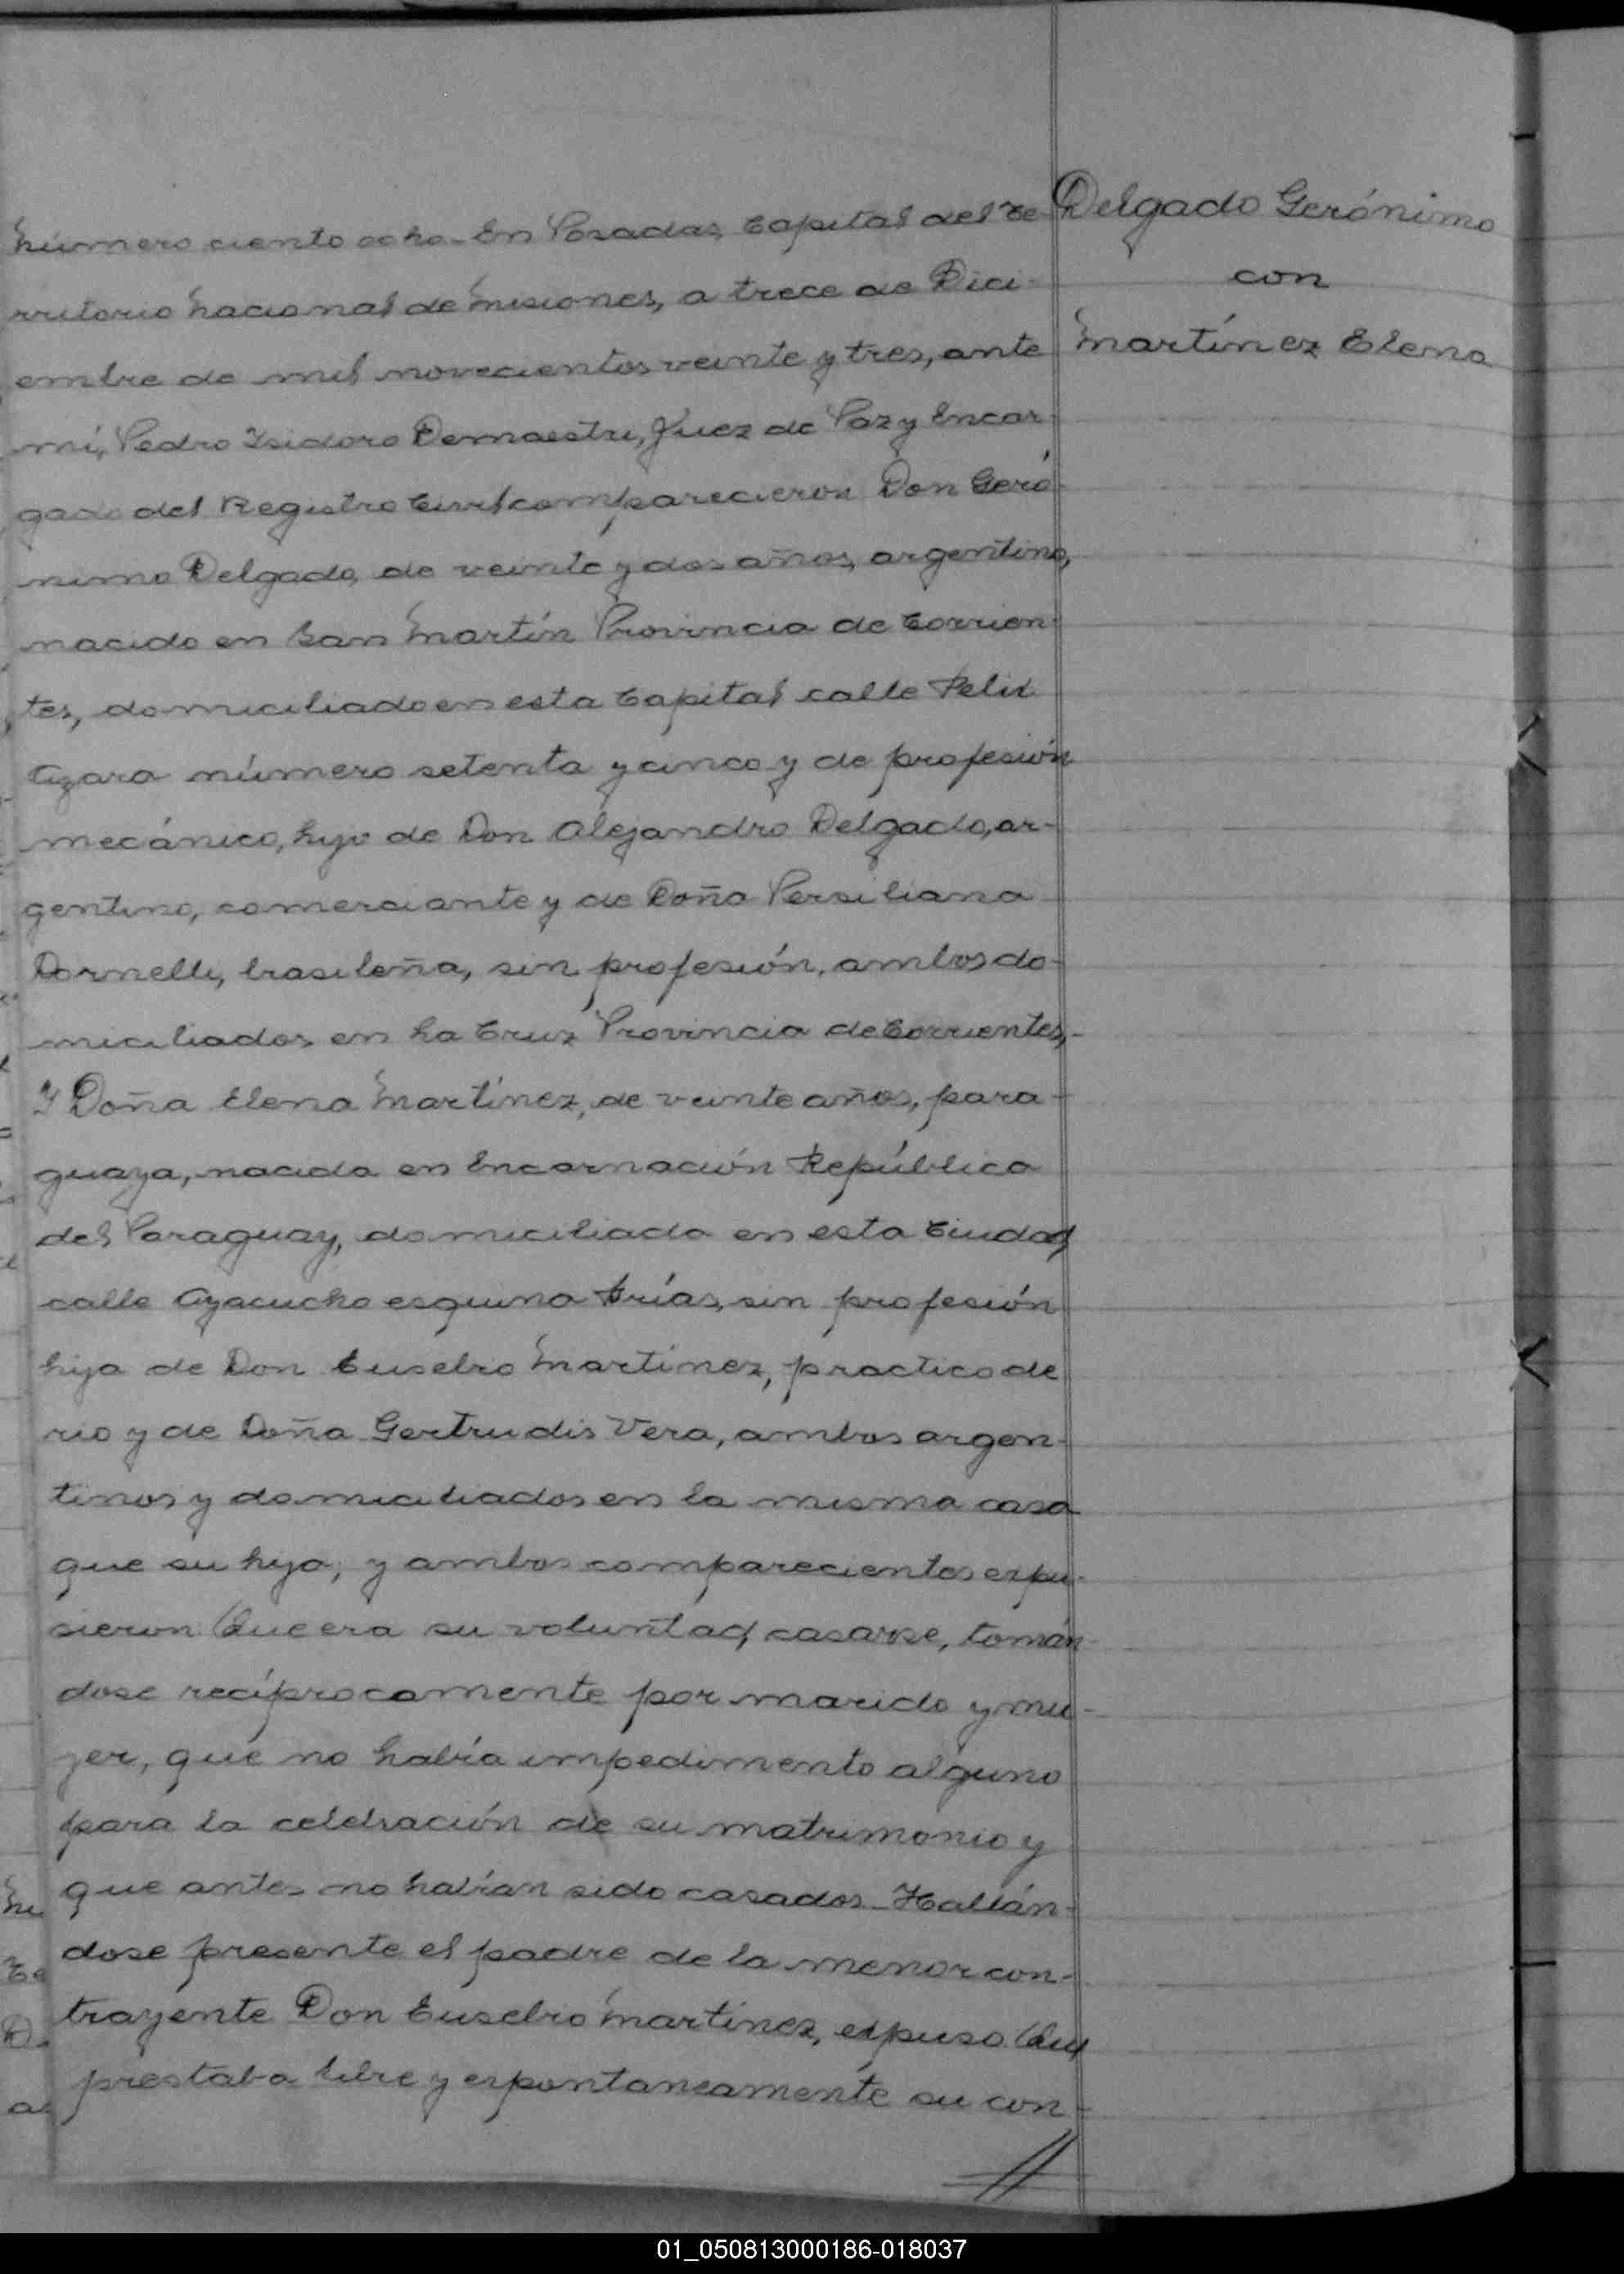 Delgado Gerónimo
con
Martínez Elena
Número ciento ocho - En Posadas, Capital del Te-
rritorio Nacional de Misiones, a trece de Dici-
embre de mil novecientos veinte y tres, ante
mí, Pedro Isidoro Demaestri, Juez de Paz y Encar-
gado del Registro Civil comparecieron Don Geró-
nimo Delgado, de veinte y dos años, argentino,
nacido en San Martín Provincia de Corrien-
tes, domiciliado en esta Capital calle Felix
Azara número setenta y cinco y de profesión
mecánico, hijo de Don Alejandro Delgado, ar-
gentino, comerciante y de Doña Persiliana
Dornelli, brasileña, sin profesión, ambos do-
miciliados en La Cruz Provincia de Corrientes,-
Y Doña Elena Martínez, de veinte años, para-
guaya, nacida en Encarnación República
del Paraguay, domiciliada en esta Ciudad
calle Ayacucho esquina Frías, sin profesión
hija de Don Eusebio Martínez, practico de
rio y de Doña Gertrudis Vera, ambos argen-
tinos y domiciliados en la misma casa
que su hija; y ambos comparecientes expu-
sieron: Que era su voluntad casarse, tomán-
dose recíprocamente por marido y mu-
jer, que no había impedimento alguno
para la celebración de su matrimonio y
que antes no habían sido casados - Hallán-
dose presente el padre de la menor con-
trayente Don Eusebio Martínez, expuso: Que
prestaba libre y expontaneamente su con-
01_050813000186-018037